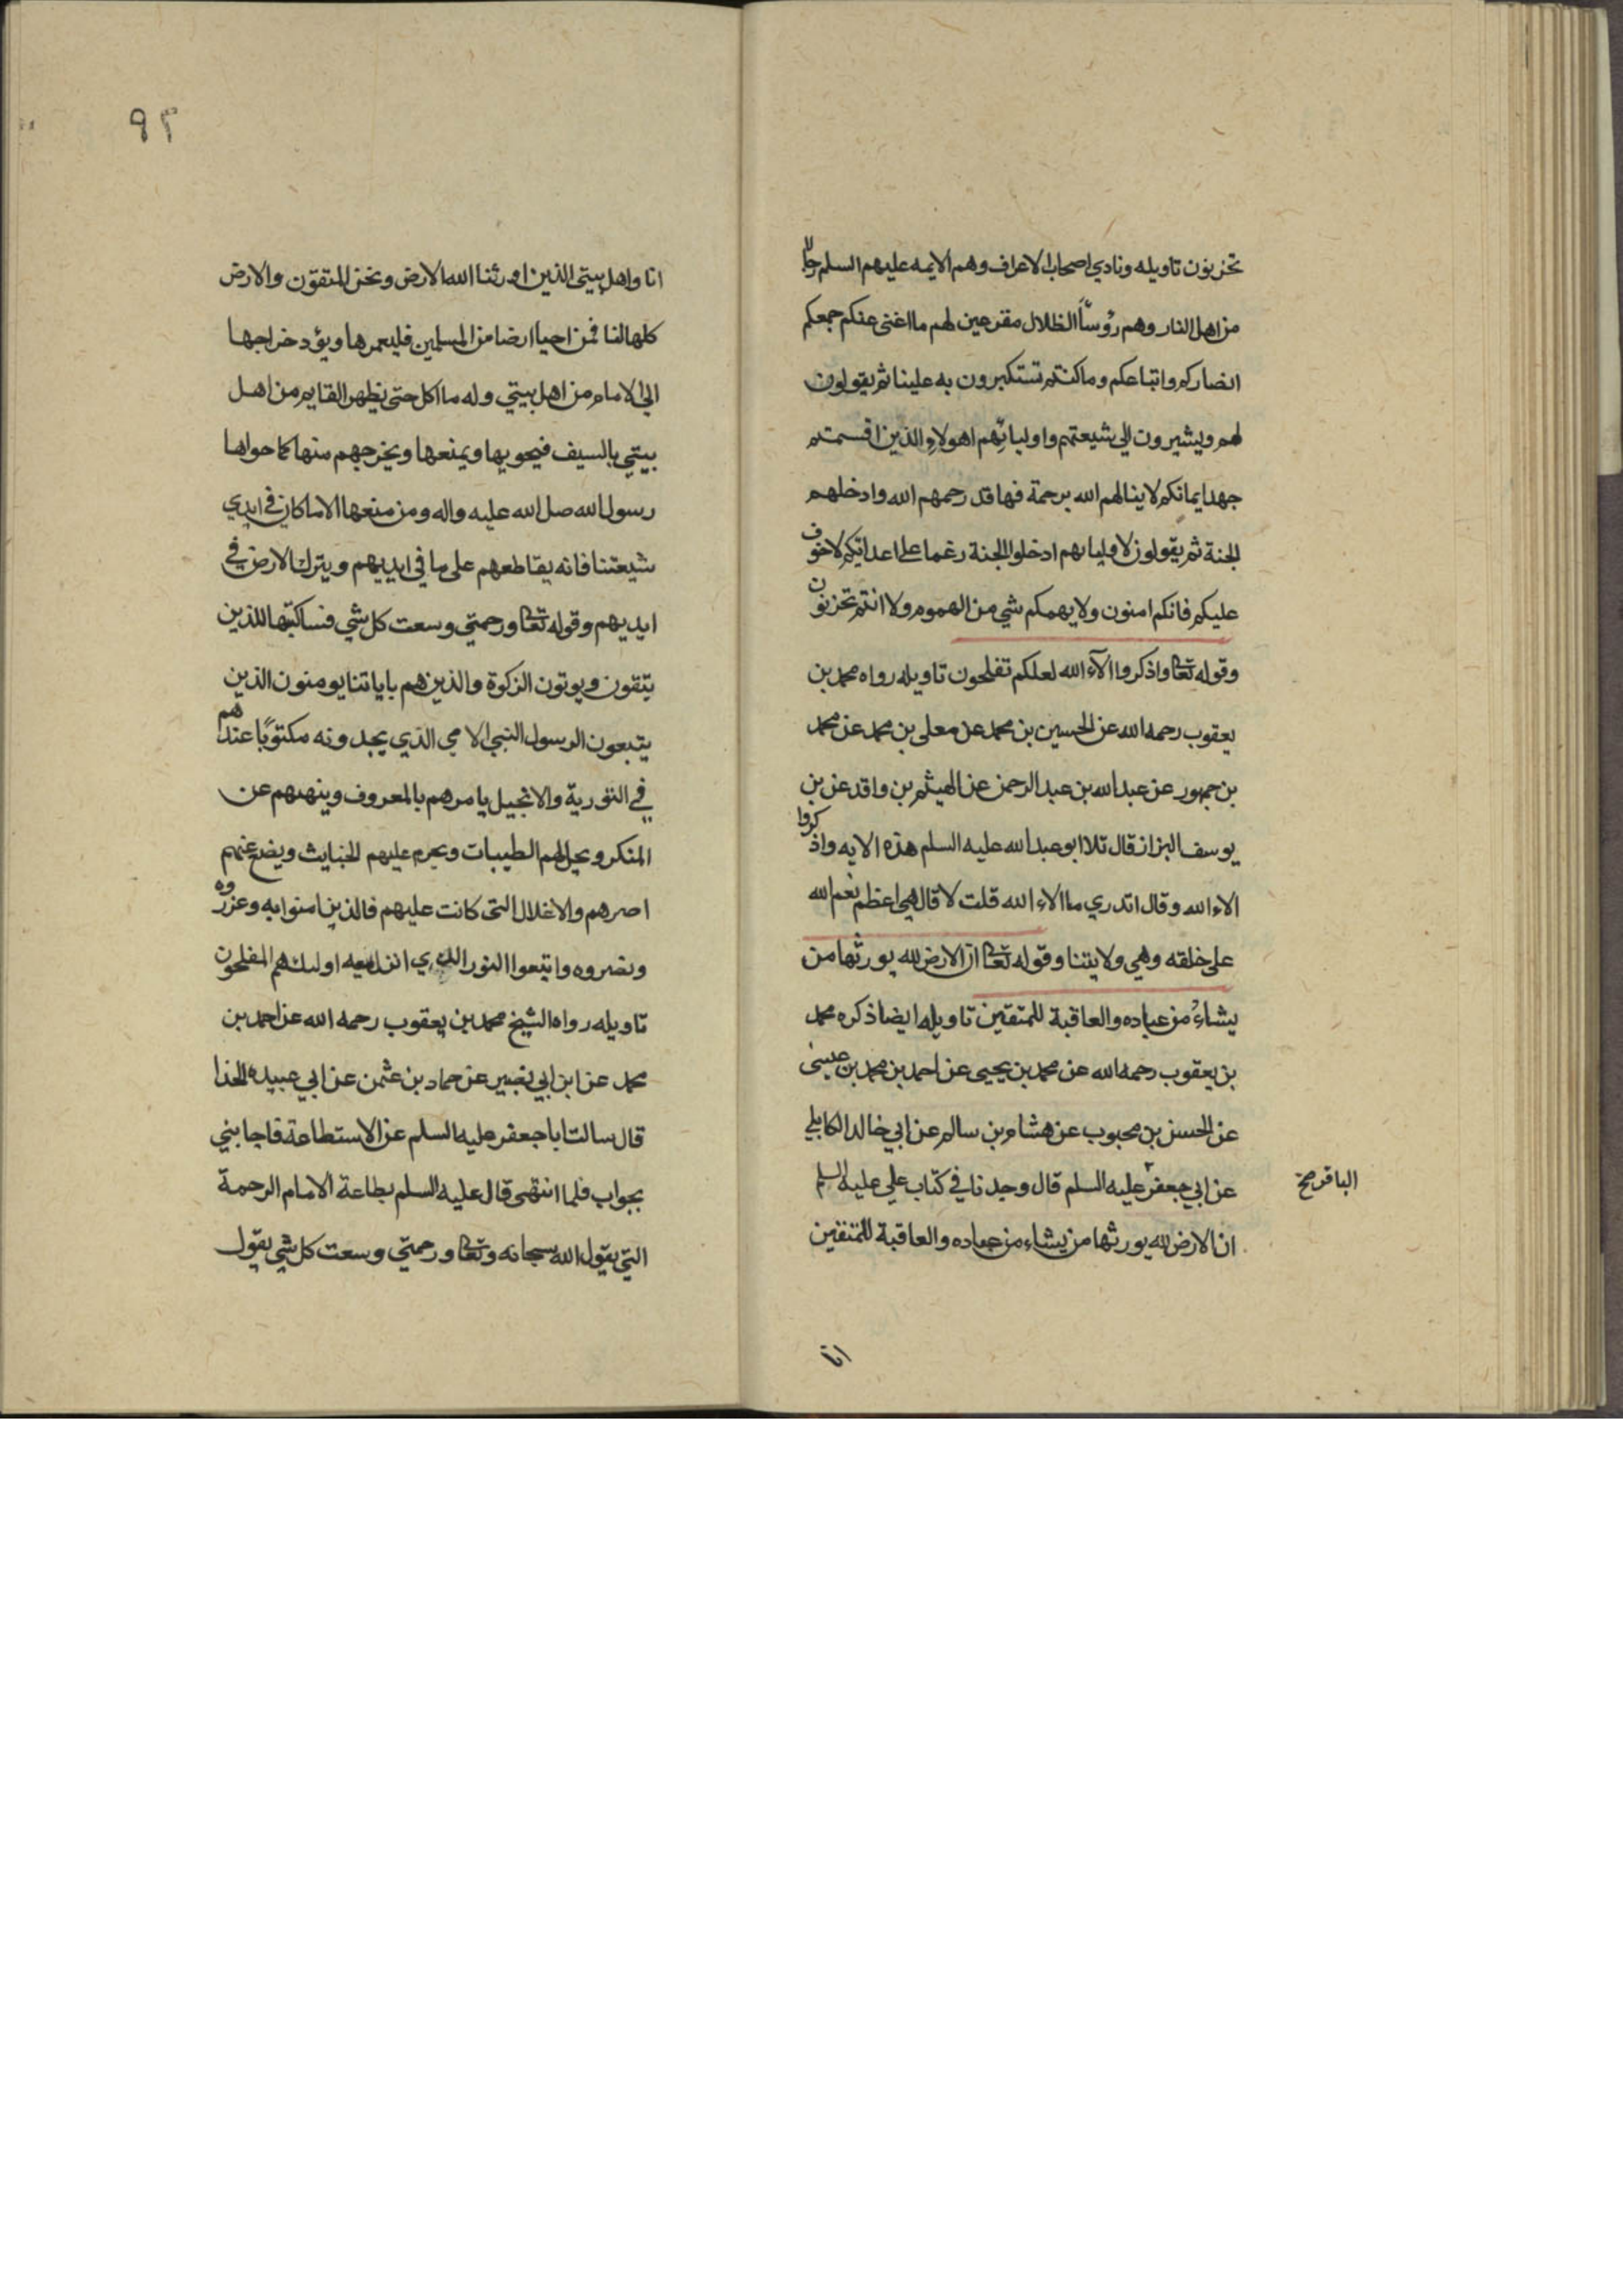 تحزنون تاويله ونادي اصحاب الاعراف وهم الايمه عليهم السلم رجالا
من اهل النار وهم رؤسآ الظلال مقرعين لهم ما اغنى عنكم جمعكم
انصاركم واتباعكم وما كنتم تستكبرون به علينا ثم يقولون
لهم وليشيرون الي شيعتهم واوليائهم اهولاء الذين اقسمتم
جهد ايمانكم لا ينالهم الله برحمة فها قد رحمهم الله وادخلهم
الجنة ثم يقولون لاوليايهم ادخلوا الجنة رغما على اعدائكم لا خوف
عليكم فانكم امنون ولا يهمكم شي من الهموم ولا انتم تحزنون
وقوله تعا واذكروا آلآء الله لعلكم تفلحون تاويله رواه محمد بن
يعقوب رحمه الله عن الحسين بن محمد عن معلى بن محمد عن محمد
بن جمهور عن عبد الله بن عبد الرحمن عن الهيثم بن واقد عن بن
يوسف البزاز قال تلا ابو عبد الله عليه السلم هذه الايه واذكروا
الاء الله وقال اتدري ما الاء الله قلت لا قال هي اعظم نعم الله
على خلقه وهي ولايتنا وقوله تعا ان الارض لله يورثها من
يشاء من عباده والعاقبة للمتقين تاويله ايضا ذكره محمد
بن يعقوب رحمه الله عن محمد بن يحيى عن احمد بن محمد بن عيسى
عن الحسن بن محبوب عن هشام بن سالم عن ابي خالد الكابلي
عن ابي جعفر عليه السلم قال وجدنا في كتاب علي عليه السلم
الباقر صح
ان الارض لله يورثها من يشاء من عباده والعاقبة للمتقين
انا
٩٢
انا واهل بيتي الذين اورثنا الله الارض ونحن المتقون والارض
كلها لنا فمن احيا ارضا من المسلمين فليعمرها ويؤد خراجها
الي الامام من اهل بيتي وله ما اكل حتى يظهر القايم من اهل
بيتي بالسيف فيحويها ويمنعها ويخرجهم منها كما حواها
رسول الله صلى الله عليه واله ومن منعها الا ما كان في ايدي
شيعتنا فانه يقاطعهم على ما في ايديهم ويترك الارض في
ايديهم وقوله تعا ورحمتي وسعت كل شي فساكتبها للذين
يتقون ويوتون الزكوة والذين هم باياتنا يومنون الذين
يتبعون الرسول النبي الامي الذي يجدونه مكتوبًا عندهم
في التورية والانجيل يامرهم بالمعروف وينهيهم عن
المنكر ويحل لهم الطيبات ويحرم عليهم الخبايث ويضع عنهم
اصرهم والاغلال التى كانت عليهم فالذين امنوا به وعزروه
ونصروه واتبعوا النور الذي انزل معه اولئك هم المفلحون
تاويله رواه الشيخ محمد بن يعقوب رحمه الله عن احمد بن
محمد عن ابن ابي نصير عن حماد بن عثمن عن ابي عبيده الحذا
قال سالت ابا جعفر عليه السلم عن الاستطاعة فاجابني
بجواب فلما انتهى قال عليه السلم بطاعة الامام الرحمة
التي يقول الله سبحانه وتعا ورحمتي وسعت كل شي يقول